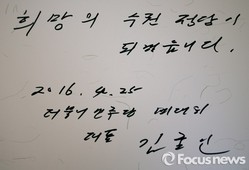 희망의 수권 정당이
되겠습니다.
2016. 4. 25
더불어민주당 비대위
대표 김종인
Focus news